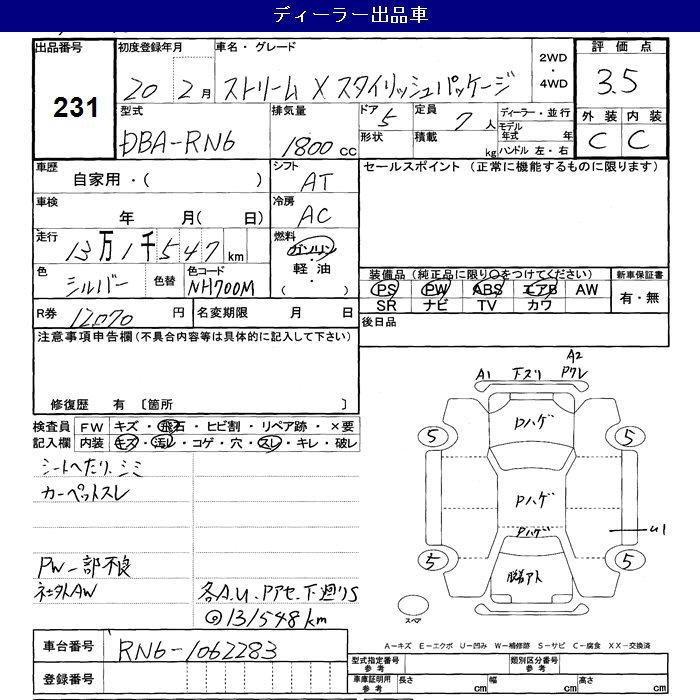 ディーラー出品車
出品番号 231
初度登録年月 20 2月
車名・グレード ストリーム X スタイリッシュパッケージ
2WD・4WD
評価点 3.5
外装 内装
C C
型式 DBA-RN6
排気量 1800cc
ドア 5
形状
定員 7人
積載 kg
ディーラー・並行
モデル年式 年
ハンドル 左・右
車歴 自家用・( )
シフト AT
セールスポイント (正常に機能するものに限ります)
車検 年 月( 日)
冷房 AC
走行 13万1千547km
燃料 ガソリン・軽油・( )
色 シルバー
色替
色コード NH700M
装備品 (純正品に限り○をつけてください)
PS PW ABS エアB AW
SR ナビ TV カワ
新車保証書 有・無
R券 12070円
名変期限 月 日
後日品
注意事項申告欄 (不具合内容等は具体的に記入して下さい)
修復歴 有 〔箇所 〕
検査員記入欄
FW キズ・飛石・ヒビ割・リペア跡・×要
内装 キズ・汚レ・コゲ・穴・スレ・キレ・破レ
シートへたり、シミ
カーペットスレ
PW一部不良
社外AW
各A.U、Pアセ、下廻りS
◎131548km
A1 下スリ A2 Pワレ
Pハゲ
5 5
Pハゲ
Pハゲ
U1
5 5
脱着アト
スペア
A-キズ E-エクボ U-凹み W-補修跡 S-サビ C-腐食 XX-交換済
車台番号 RN6-1062283
登録番号
型式指定番号 参考
類別区分番号 参考
車庫証明用 参考 長さ cm 幅 cm 高さ cm